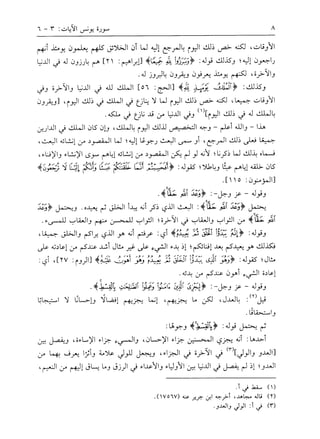 ٨ سورة يونس الآيات: ٣ - ٦
الأوقات، لكنه خص ذلك اليوم بالمرجع إليه لما أن الخلائق كلهم يعلمون يومئذ أنهم
راجعون إليه؛ وكذلك قوله: ﴿وَبَرَزُوا لِلَّهِ جَمِيعًا﴾ [إبراهيم: ٢١] هم بارزون له في الدنيا
والآخرة، لكنهم يومئذ يعرفون ويقرون بالبروز له.
وكذلك: ﴿الْمُلْكُ يَوْمَئِذٍ لِلَّهِ﴾ [الحج: ٥٦] الملك لله في الدنيا والآخرة وفي
الأوقات جميعا، لكنه خص ذلك اليوم لما لا ينازع في الملك في ذلك اليوم، [ويقرون
بالملك له في ذلك اليوم](١) وفي الدنيا من قد نازع في ملكه.
هذا - والله أعلم - وجه التخصيص لذلك اليوم بالملك، وإن كان الملك في الدارين
جميعا فعلى ذلك المرجع، أو سمى البعث رجوعًا إليه؛ لما المقصود من إنشائه البعث،
فسماه بذلك لما ذكرنا؛ لأنه لو لم يكن المقصود من إنشائه إياهم سوى الإنشاء والإفناء،
كان خلقه إياهم عبثًا وباطلا؛ كقوله: ﴿أَفَحَسِبْتُمْ أَنَّمَا خَلَقْنَاكُمْ عَبَثًا وَأَنَّكُمْ إِلَيْنَا لَا تُرْجَعُونَ﴾
[المؤمنون: ١١٥].
وقوله - عز وجل -: ﴿وَعْدَ اللَّهِ حَقًّا﴾.
يحتمل ﴿وَعْدَ اللَّهِ حَقًّا﴾: البعث الذي ذكر أنه يبدأ الخلق ثم يعيده. ويحتمل ﴿وَعْدَ
اللَّهِ حَقًّا﴾ من الثواب والعقاب في الآخرة؛ الثواب للمحسن منهم والعقاب للمسيء.
وقوله: ﴿إِنَّهُ يَبْدَأُ الْخَلْقَ ثُمَّ يُعِيدُهُ﴾. أي: عرفتم أنه هو الذي يراكم والخلق جميعا،
فكذلك هو يعيدكم بعد إفنائكم؛ إذ بدء الشيء على غير مثال أشد عندكم من إعادته على
مثال؛ كقوله: ﴿وَهُوَ الَّذِي يَبْدَأُ الْخَلْقَ ثُمَّ يُعِيدُهُ وَهُوَ أَهْوَنُ عَلَيْهِ﴾ [الروم: ٢٧]، أي:
إعادة الشيء أهون عندكم من بدئه.
وقوله - عز وجل -: ﴿لِيَجْزِيَ الَّذِينَ آمَنُوا وَعَمِلُوا الصَّالِحَاتِ بِالْقِسْطِ﴾.
قيل(٢): بالعدل، لكن ما يجزيهم، إنما يجزيهم إفضالًا وإحسانًا لا استيجابًا
واستحقاقًا.
ثم يحتمل قوله: ﴿بِالْقِسْطِ﴾ وجوهًا:
أحدها: أنه يجزي المحسنين جزاء الإحسان، والمسيء جزاء الإساءة، ويفصل بين
[العدو والولي](٣) في الآخرة في الجزاء، ويجعل للولي علامة وأثرا يعرف بهما من
العدو؛ إذ لم يفصل في الدنيا بين الأولياء والأعداء في الرزق وما يساق إليهم من النعيم،
(١) سقط في أ.
(٢) قاله مجاهد، أخرجه ابن جرير عنه (١٧٥٦٧)
(٣) في أ: الولي والعدو.